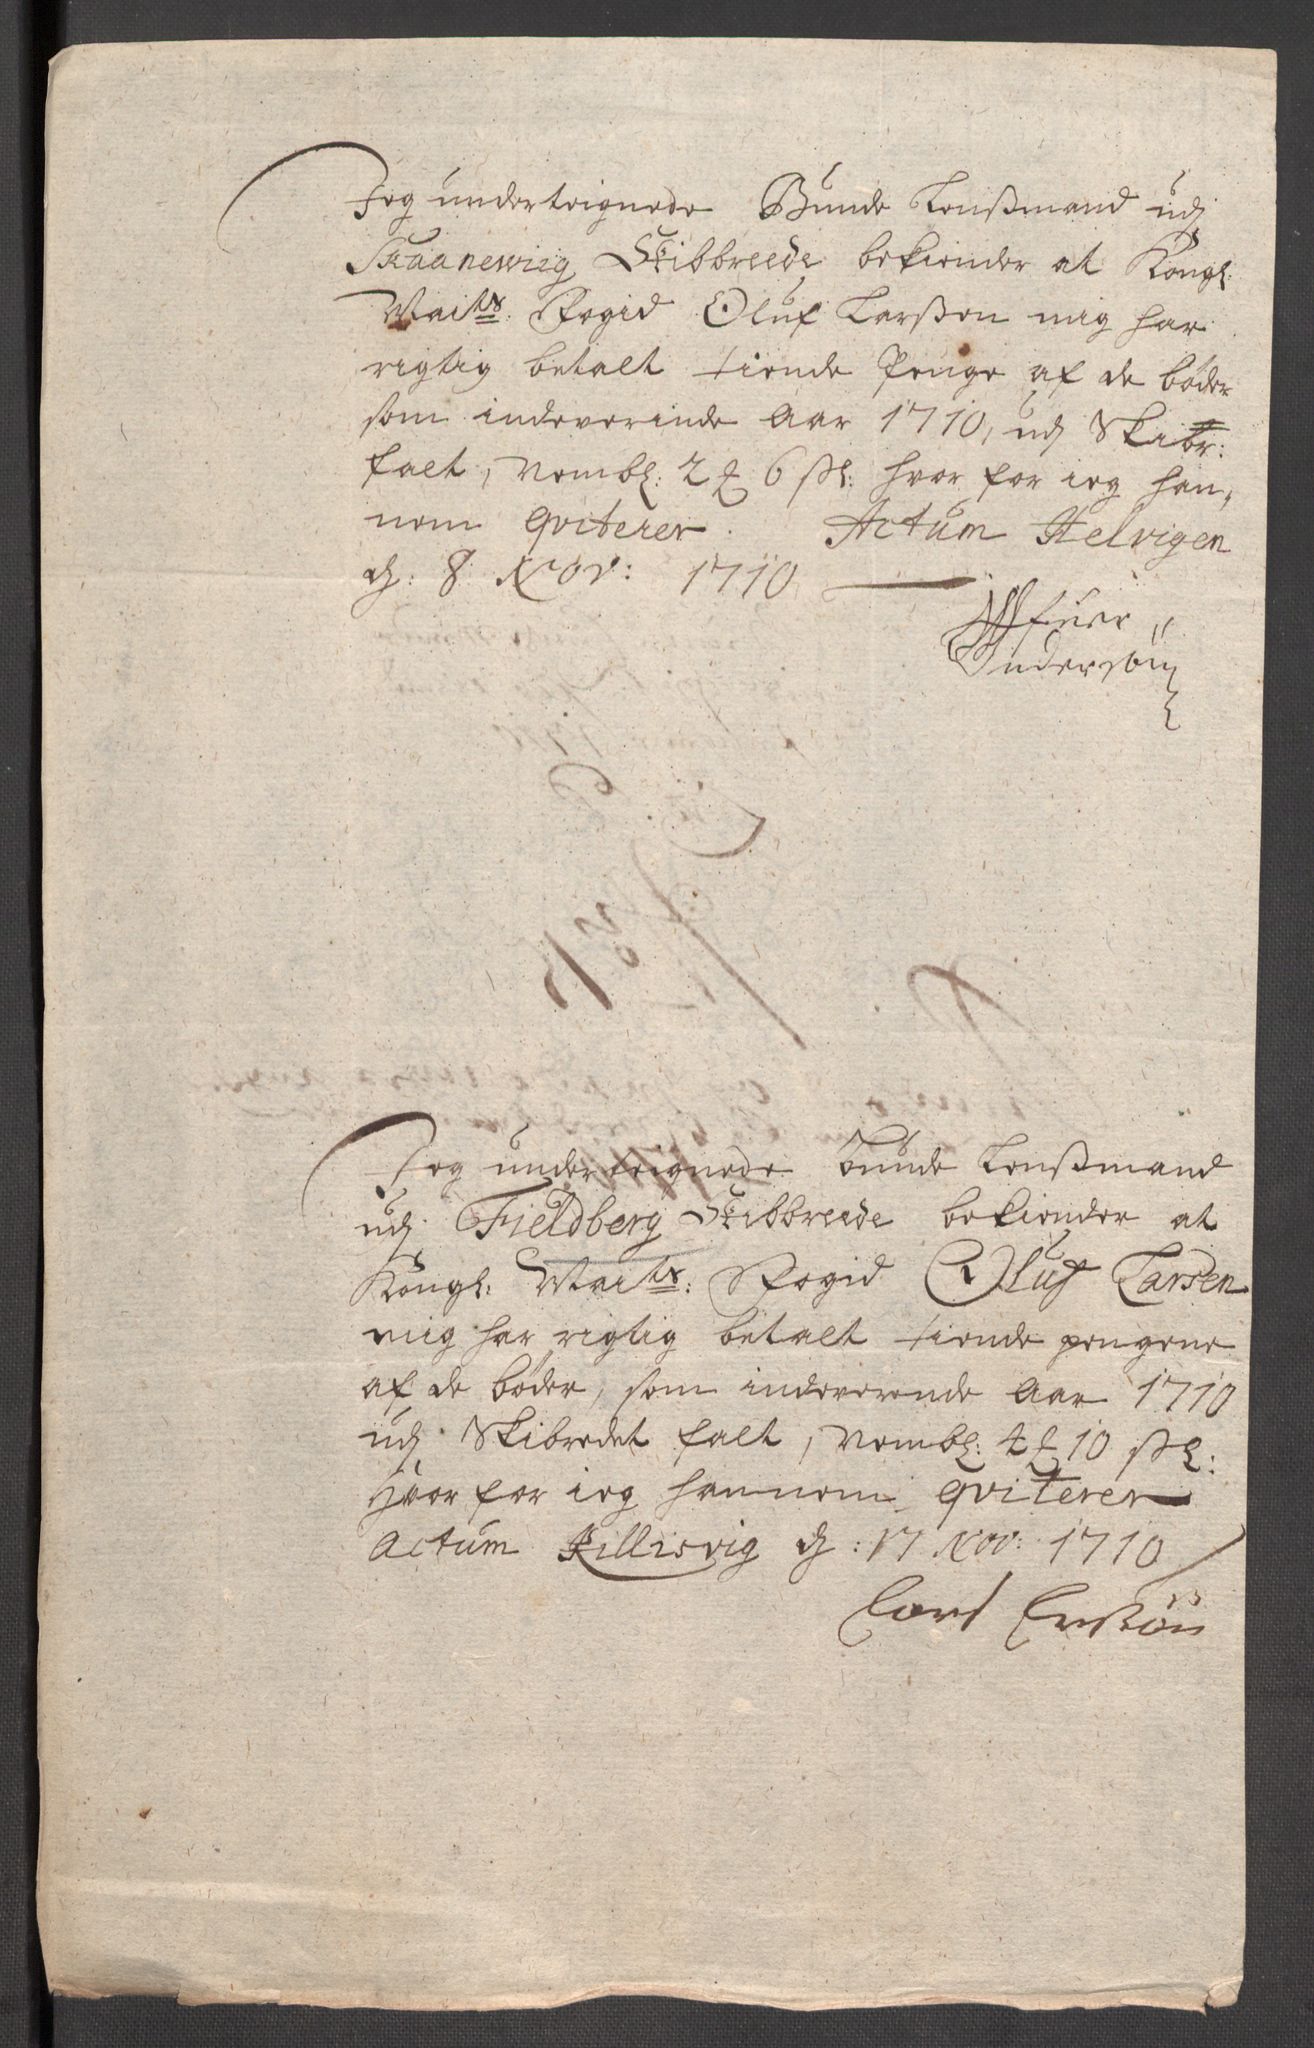 Jeg undertegnede Bunde Lenßmand udj
Skaanewiig Skibbreede bekiender at Kongl:
Maits: Fogid Oluf Larßon mig har
rigtig betalt tiende Penge af de bøder
som indeverinde Aar 1710, udj Skibr:
falt, nembl: 2 6 sk: hvor for ieg han,
nem qviterer. Actum Helvigen
dj: 8 Nov: 1710
Andersøn
Jeg undertegnede bunde Lenßmand
udj Fieldberg Skibbreede bekiender at
Kongl: Maits: Fogid Oluf Larsen
mig har rigtig betalt tiende pengene
af de bøder, som indeverende Aar 1710
udj Skibredet falt, nembl: 4 10 sk:
Hvor for ieg hannem qviterer
Actum Killisvig dj: 17 Nov: 1710
Lars